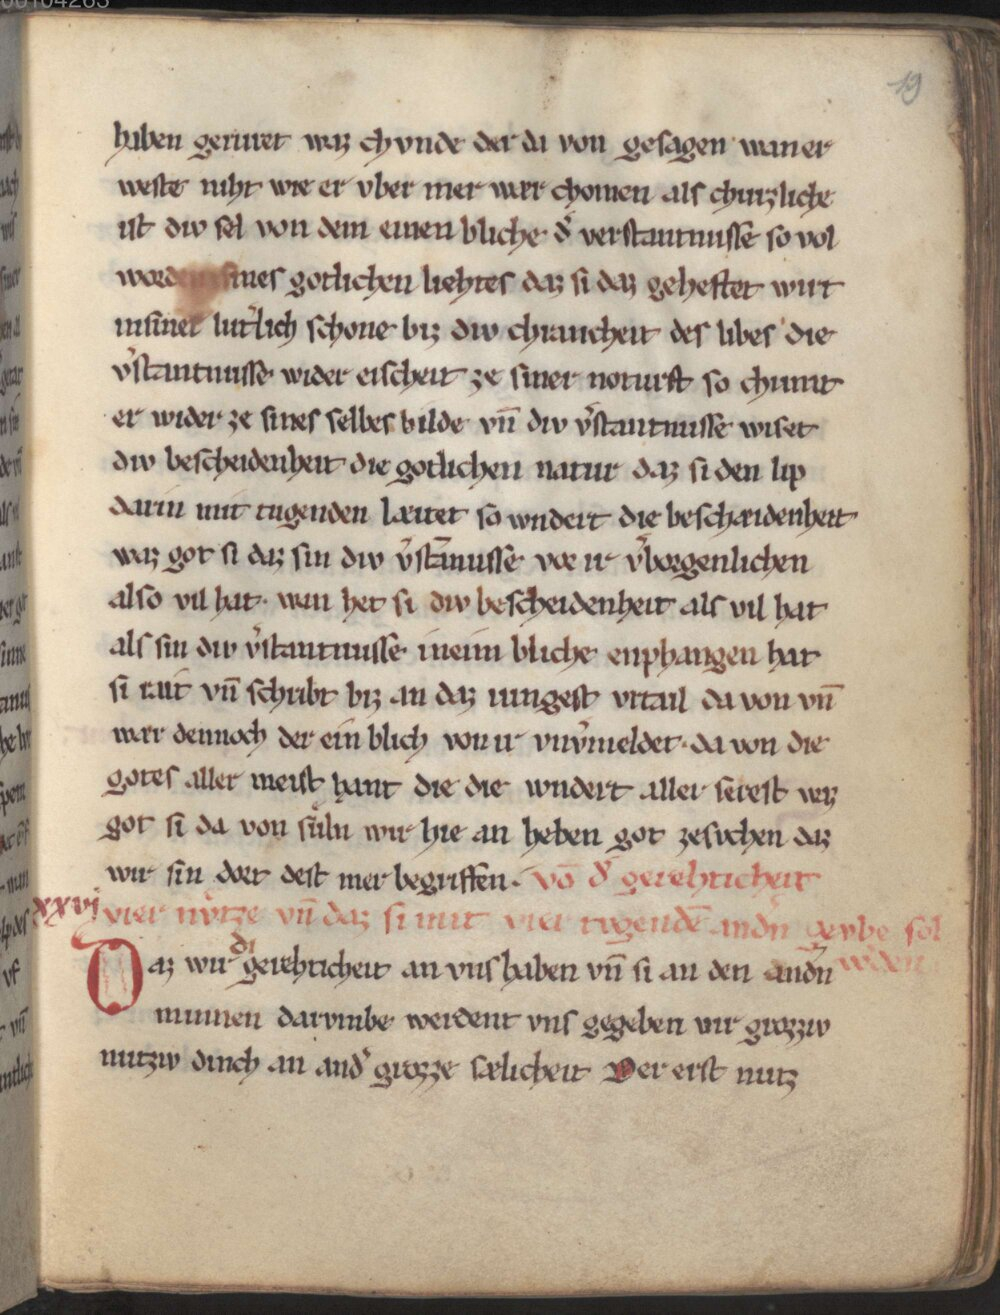 19
haben gerůret waz chvnde der da von gesagen wan er
weste niht wie er vber mer wær chomen als churzliche
ist div sel von dem einen bliche d̾ verstantnusse so vol
worden sines gotlichen liehtes daz si daz geheftet wirt
in siner lut̾lich schone biz div chrancheit des libes die
v̾stantnusse wider eischeit ze siner noturft so chumt
er wider ze sines selbes bilde vn̄ div v̾stantnusse wiset
div bescheidenheit die gotlichen natur daz si den lip
darin mit tugenden læitet so wndert die beschæidenheit
waz got si daz sin div v̾stānusse vor ir v̾borgenlichen
also vil hat. wan het si div bescheidenheit als vil hat
als sin div v̾stantnusse in eim bliche enphangen hat
si rait vn̄ schribt biz an daz iungest vrtail da von vn̄
wær dennoch der ein blich von ir vnv̾meldet. da von die
gotes aller meist hant die die wndert aller serest wez
got si da von sůln wir hie an heben got zesvchen daz
wir sin dort dest mer begriffen. vō d̾ gerehticheit
xxvi vier nv̊tze vn̄ daz si mit vier tvgendē andn̾ gevbe sol
Daz wir di gerehticheit an vns haben vn̄ si an den andn̾ w̾den
minnen darvmbe werdent vns gegeben vir grozziv
nutziv dinch an and̾ grozze sælicheit Der erst nutz